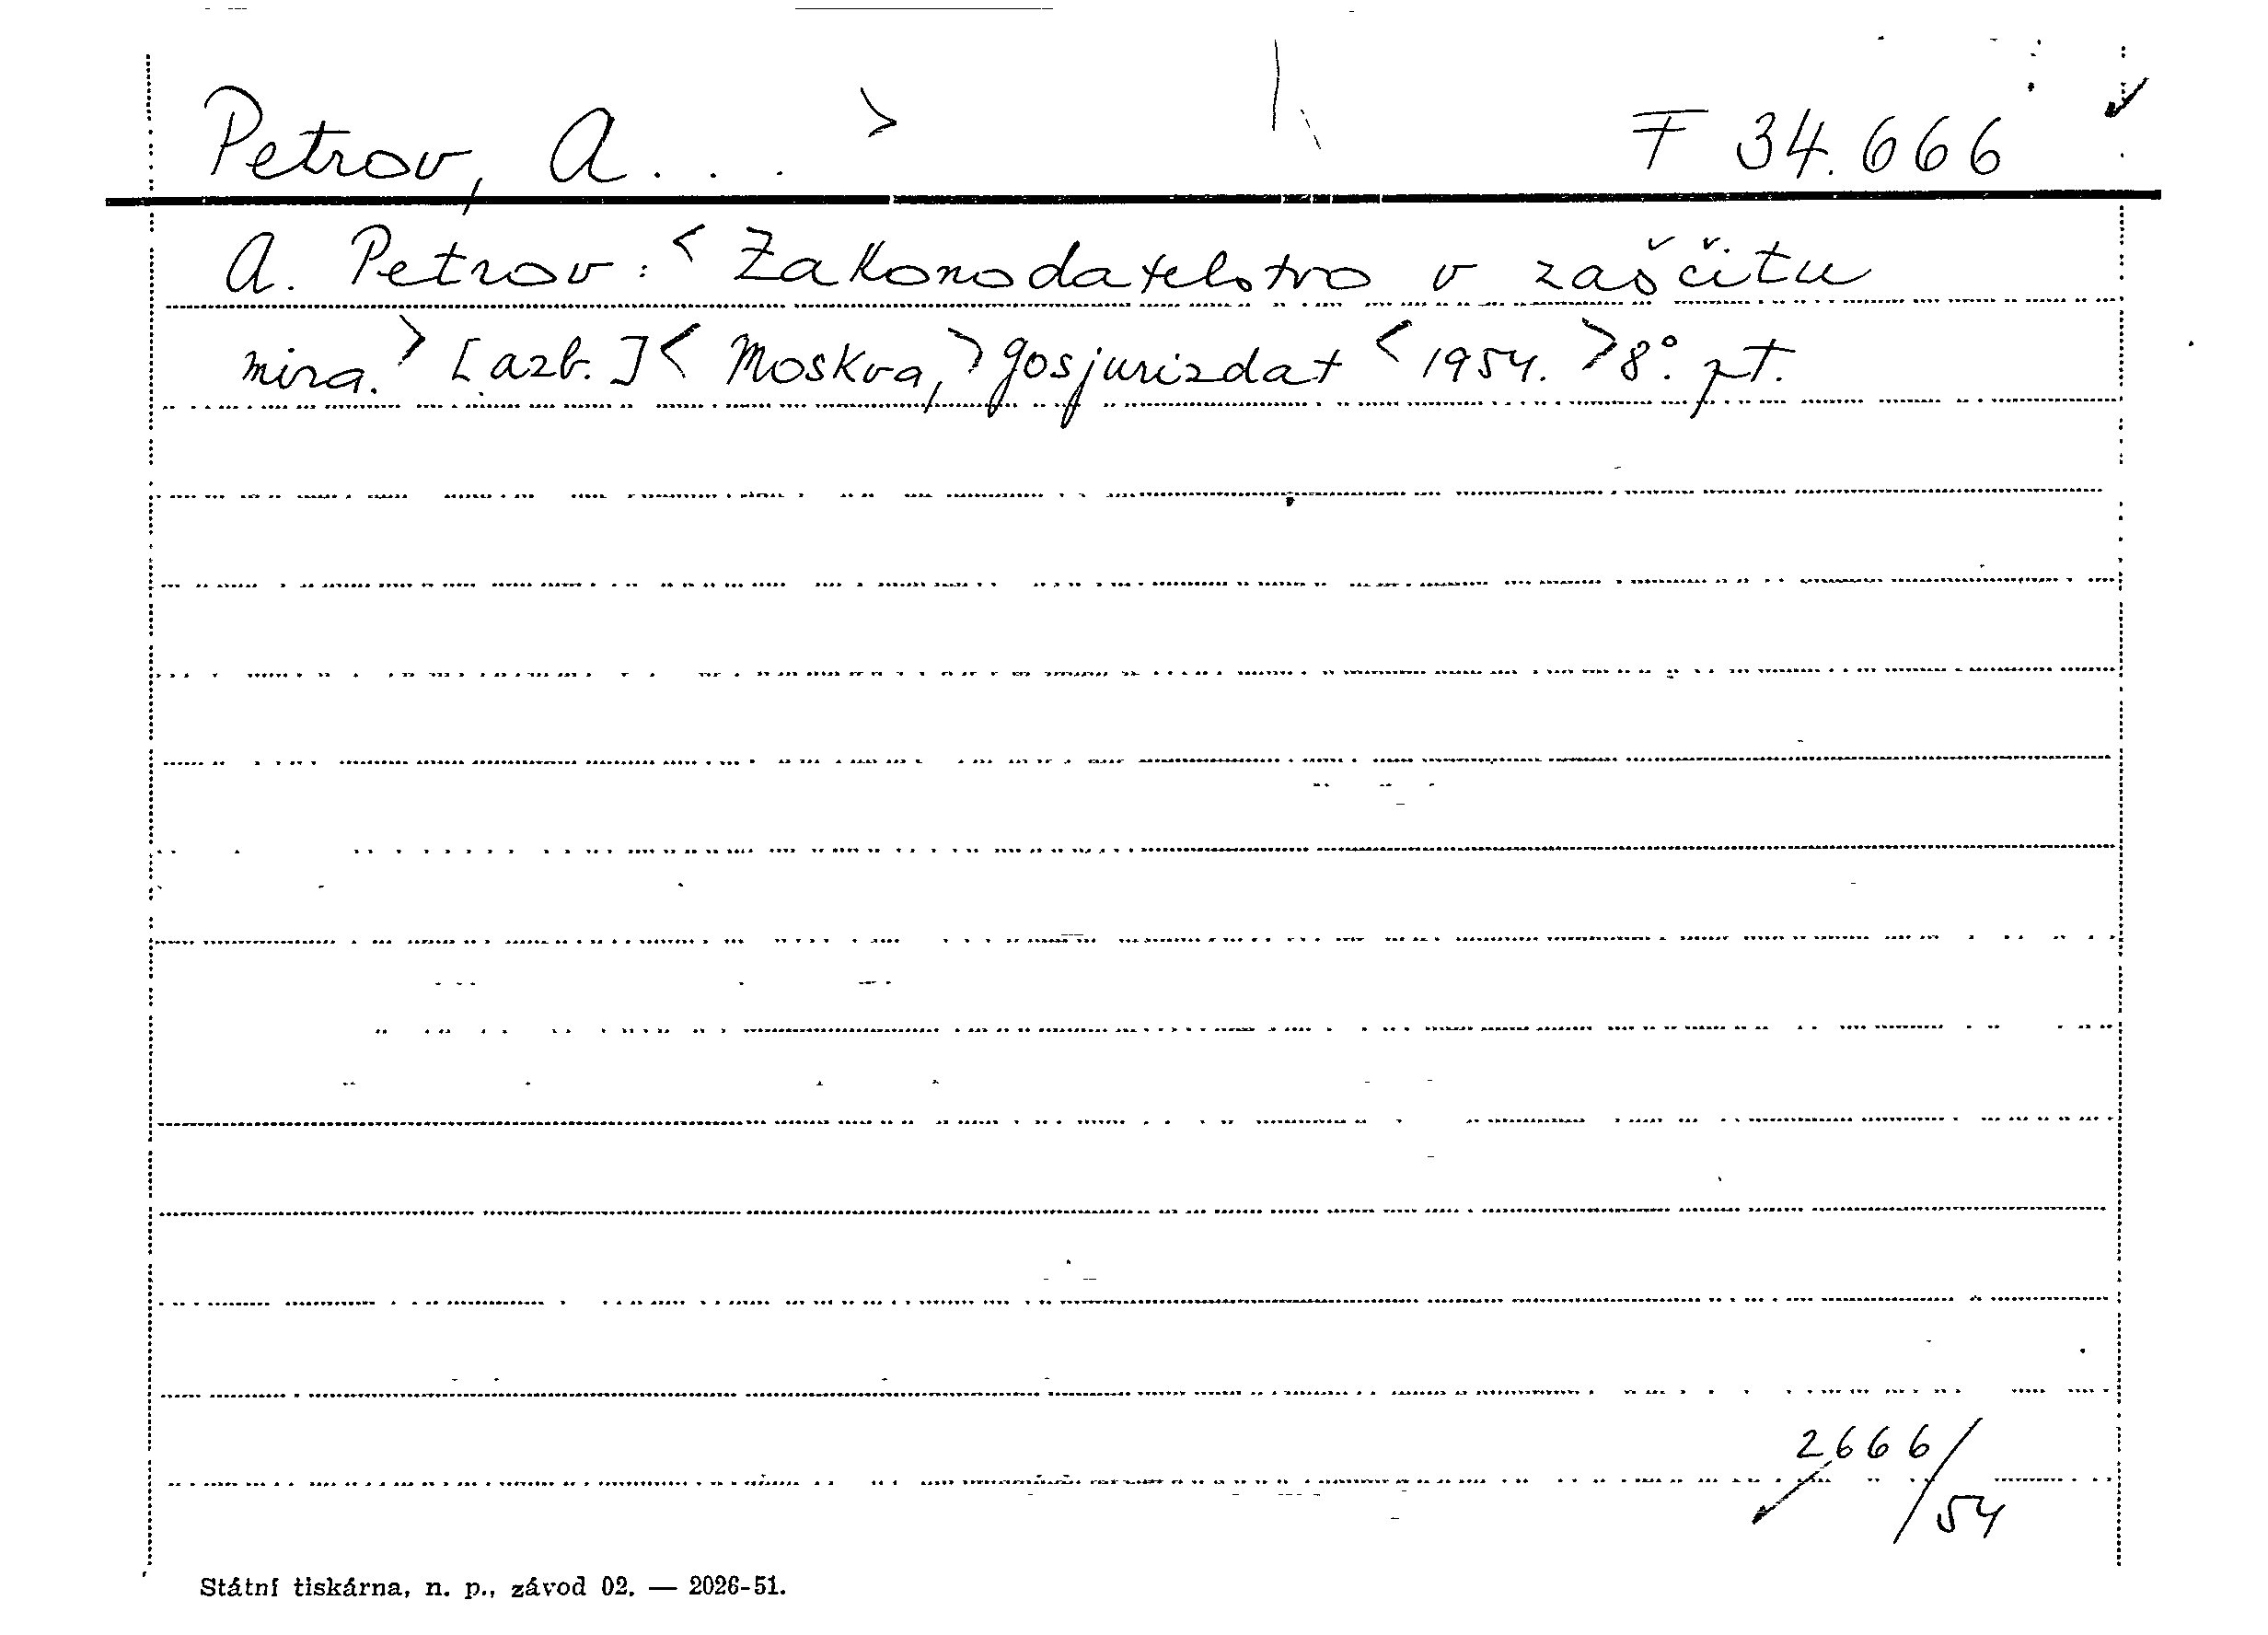 Petrov, A... > F 34.666
A. Petrov: < Zakonodatelstvo v zaščitu
mira. > [azb.] < Moskva, > gosjurizdat < 1954. > 8°. pt.
2666/
54
Státní tiskárna, n. p., závod 02. — 2026-51.